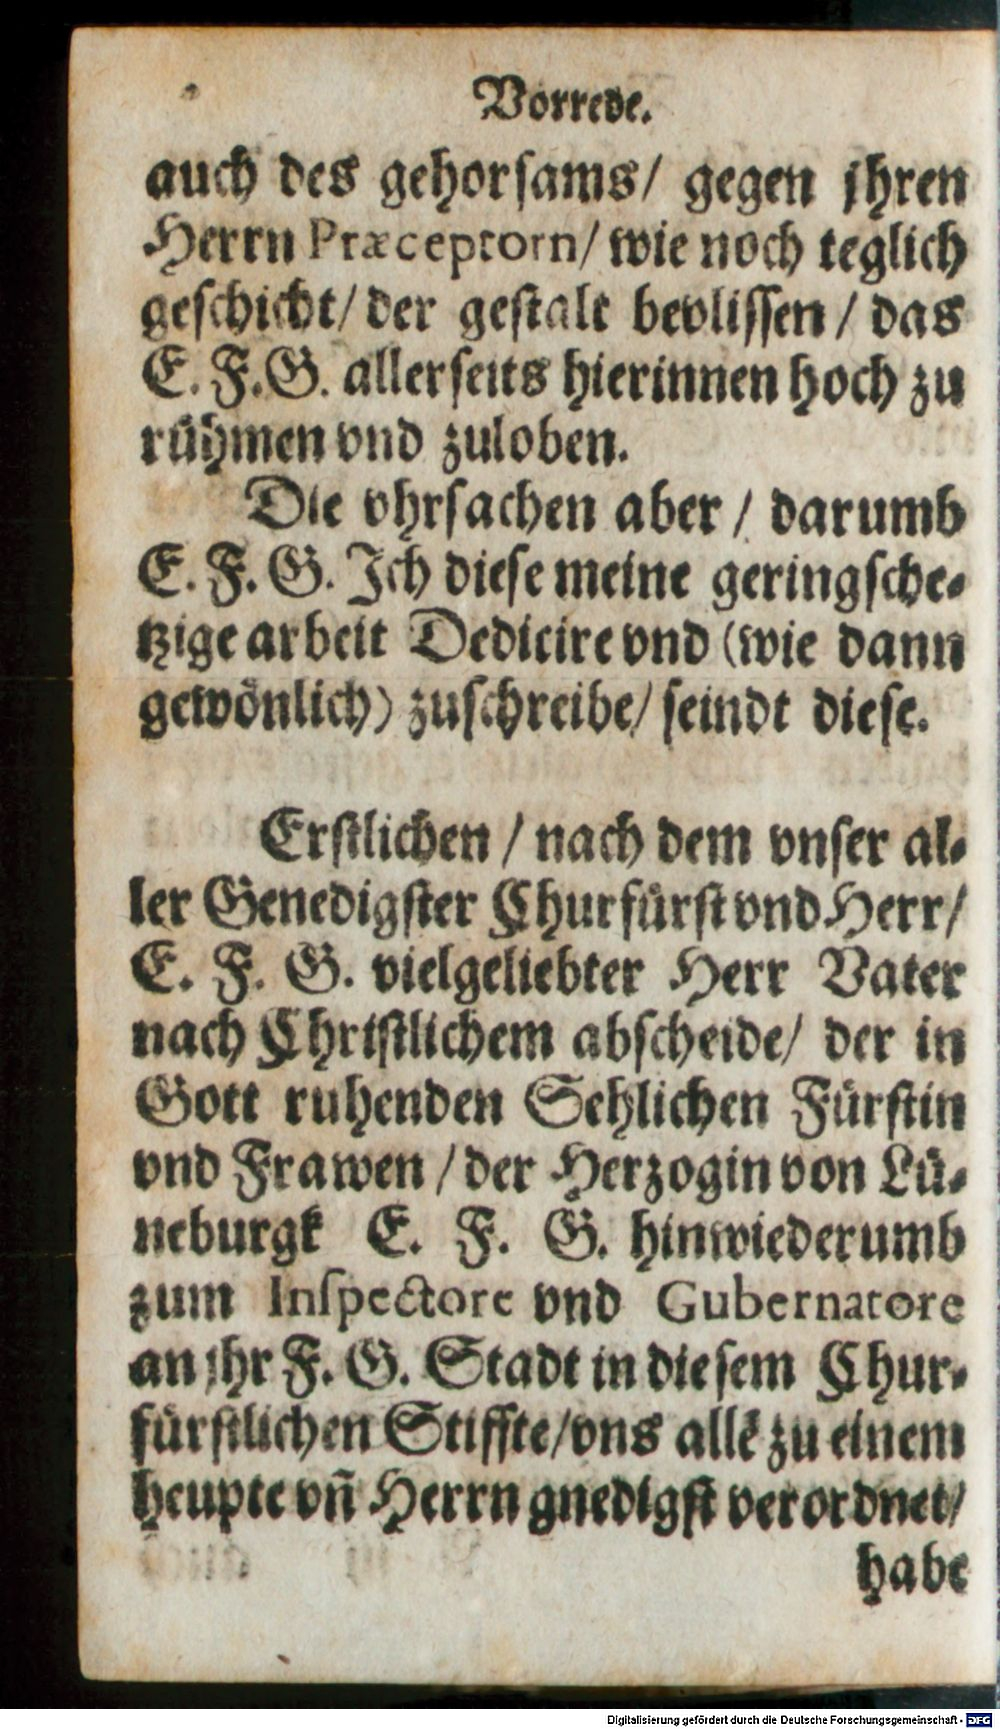 Vorrede.
auch des gehorsams/ gegen jhren
Herrn Præceptorn/ wie noch teglich
geschicht/ der gestalt bevlissen / das
E. F. G. allerseits hierinnen hoch zu
rühmen vnd zuloben.
Die vhrsachen aber / darumb
E. F. G. Ich diese meine geringsche-
tzige arbeit Dedicire vnd (wie dann
gewönlich) zuschreibe/ seindt diese.
Erstlichen / nach dem vnser al-
ler Genedigster Churfürst vnd Herr/
E. F. G. vielgeliebter Herr Vater
nach Christlichem abscheide/ der in
Gott ruhenden Sehlichen Fürstin
vnd Frawen / der Herzogin von Lü-
neburgk E. F. G. hinwiederumb
zum Inspectore vnd Gubernatore
an jhr F. G. Stadt in diesem Chur-
fürstlichen Stiffte/ vns allē zu einem
heupte vñ Herrn gnedigst verordnet/
habe
Digitalisierung gefördert durch die Deutsche Forschungsgemeinschaft - DFG